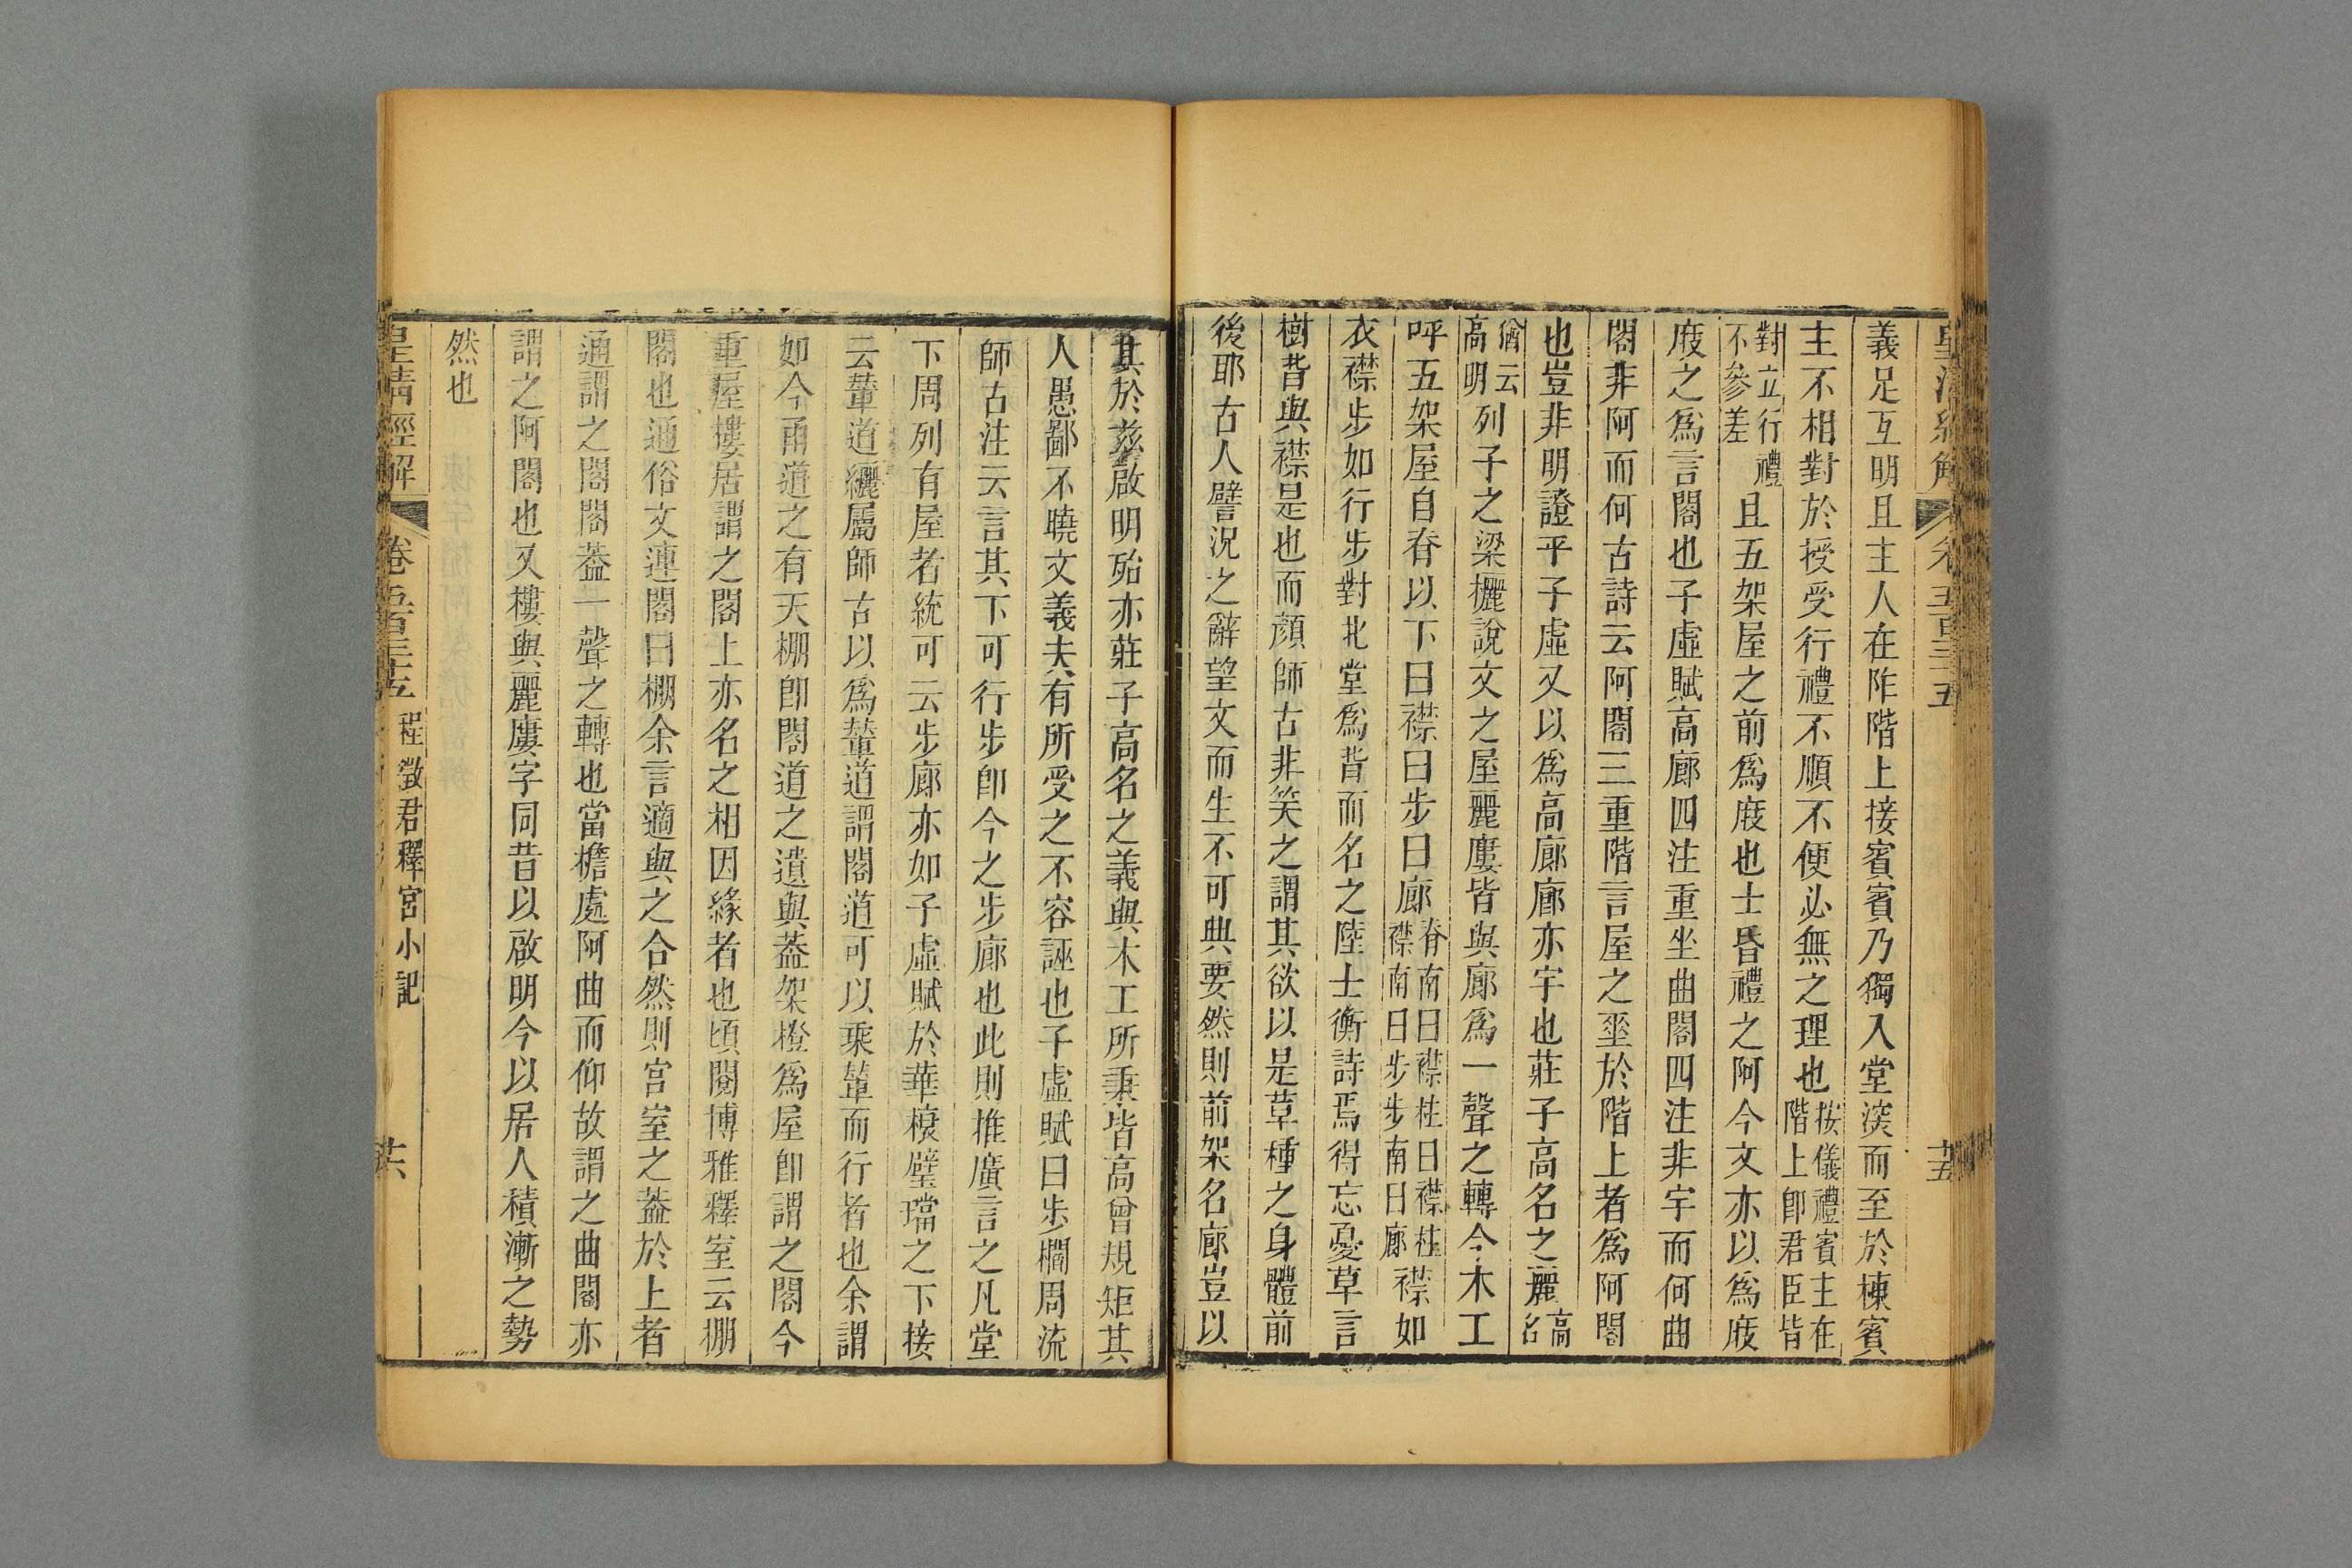 皇清經解 卷五百三十五 十五
義足互明且主人在阼階上接賓賓乃獨入堂深而至於棟賓
主不相對於授受行禮不順不便必無之理也按儀禮賓主在階上卽君臣皆
對立行禮不參差且五架屋之前爲庪也士昏禮之阿今文亦以爲庪
庪之爲言閣也子虛賦高廊四注重坐曲閣四注非宇而何曲
閣非阿而何古詩云阿閣三重階言屋之坙於階上者爲阿閣
也豈非明證乎子虛又以爲高廊廊亦宇也莊子高名之麗高名
猶云高明列子之梁欐說文之屋麗廔皆與廊爲一聲之轉今木工
呼五架屋自脊以下曰襟曰步曰廊脊南曰襟柱曰襟柱襟南曰步步南曰廊襟如
衣襟步如行步對北堂爲背而名之陸士衡詩焉得忘憂草言
樹背與襟是也而顏師古非笑之謂其欲以是草種之身體前
後耶古人譬況之辭望文而生不可典要然則前架名廊豈以
其於茲啟明殆亦莊子高名之義與木工所秉皆高曾規矩其
人愚鄙不曉文義夫有所受之不容誣也子虛賦曰步櫩周流
師古注云言其下可行步卽今之步廊也此則推廣言之凡堂
下周列有屋者統可云步廊亦如子虛賦於華榱璧璫之下接
云輦道纚屬師古以爲輦道謂閣道可以乘輦而行者也余謂
如今甬道之有天棚卽閣道之遺與葢架橙爲屋卽謂之閣今
重屋樓居謂之閣上亦名之相因緣者也頃閱博雅釋室云棚
閣也通俗文連閣曰棚余言適與之合然則宮室之葢於上者
通謂之閣閣葢一聲之轉也當檐處阿曲而仰故謂之曲閣亦
謂之阿閣也又樓與麗廔字同昔以啟明今以居人積漸之勢
然也
皇清經解 卷五百三十五 程徵君釋宮小記 十六